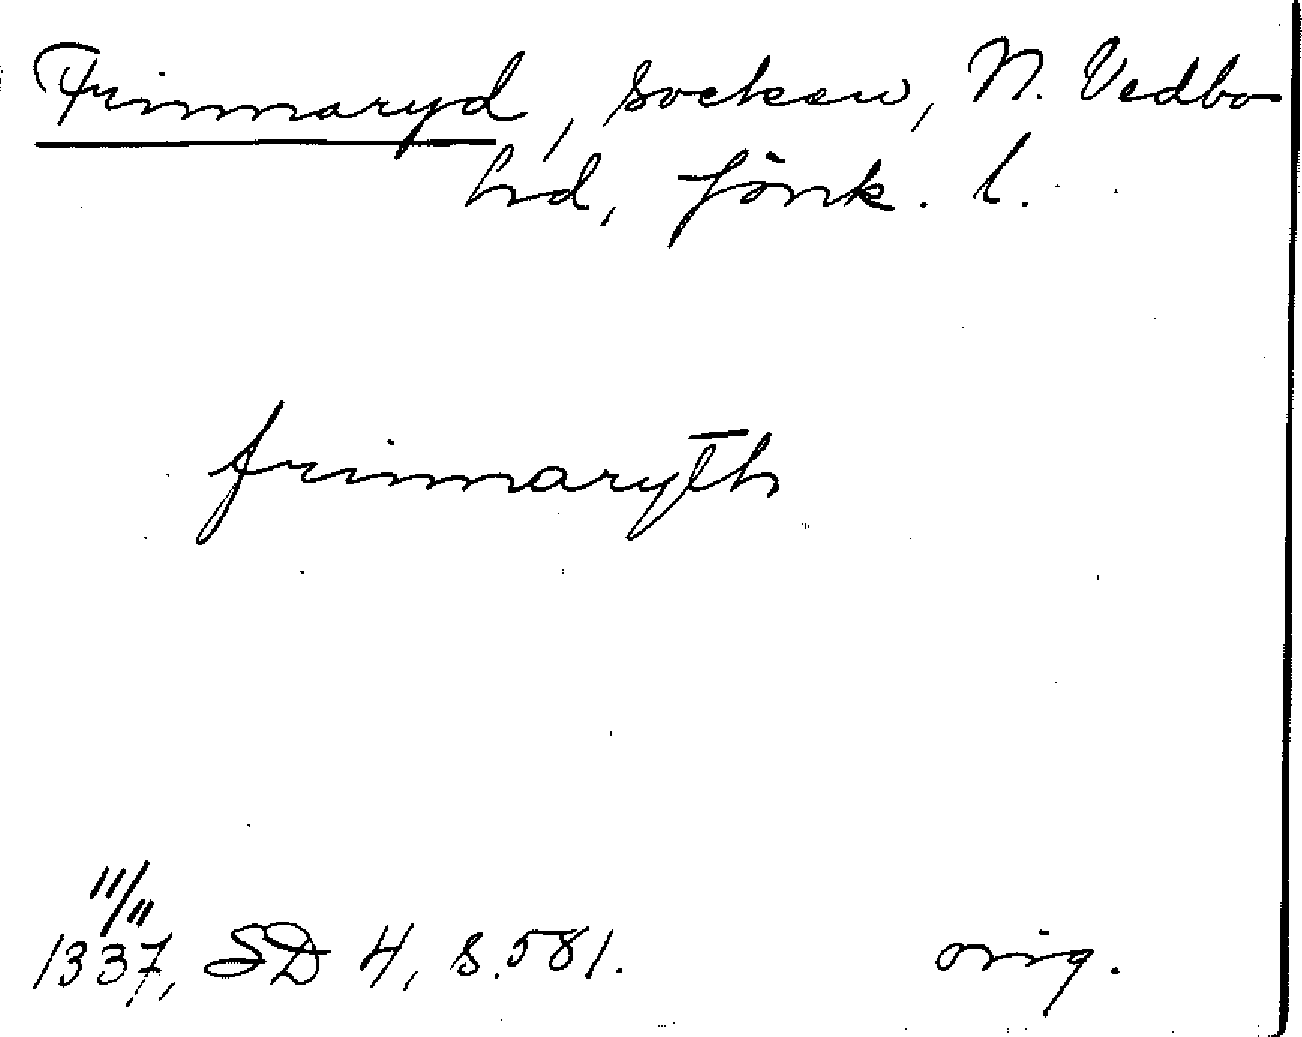 Frinnaryd, socken, N. Vedbo
hd, Jönk. l.
frinnaryth
11/11
1337, SD 4, s. 581. orig.